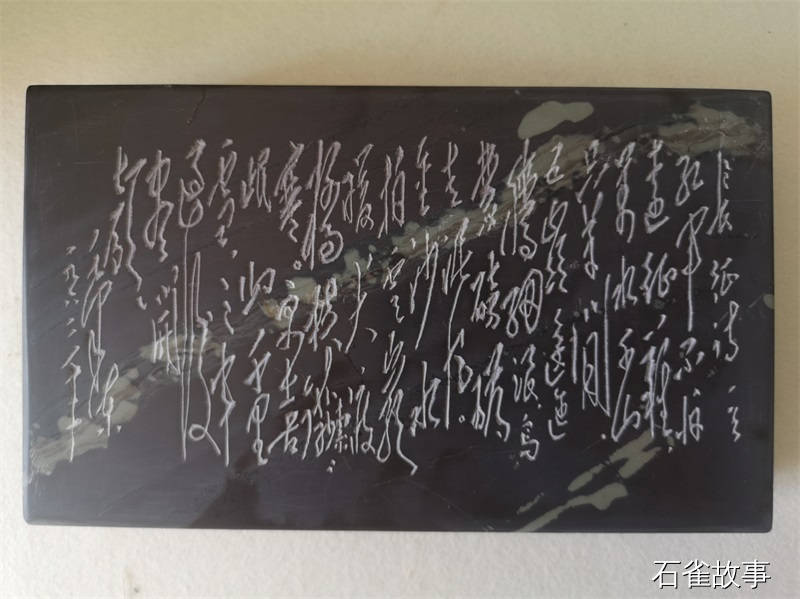 長征詩一首
紅軍不怕
遠征難，
萬水千山
只等閒。
五嶺逶迤
騰細浪，烏
蒙磅礴
走泥丸。
金沙水
拍雲崖
暖，大渡
橋橫鐵索
寒。更喜
岷山千里
雪，三軍
過後
盡開
顏。
毛澤東
一九六二